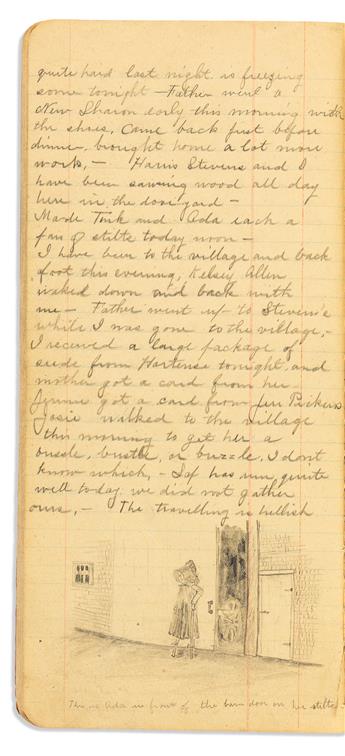 quite hard last night. is freezing
some tonight – Father went a
New Sharon early this morning with
the shoes, Came back just before
dinner, brought home a lot more
work, – Harris Stevens and I
have been sawing wood all day
here in the dooryard –
Made Tink and Ada each a
pair of stilts today noon –
I have been to the village and back
foot this evening, Kelsey Allen
walked down and back with
me – Father went up to Steven's
while I was gone to the village, –
I received a large package of
seeds from Hortense tonight, and
mother got a card from her –
Jennie got a card from Jen Perkins
Josie walked to the village
this morning to get her a
bussle, bustle, or buzzle, I dont
know which, – Sap has run quite
well today, we did not gather
ours, – The travelling is hellish
This is Ada in front of the barn door on her stilts –